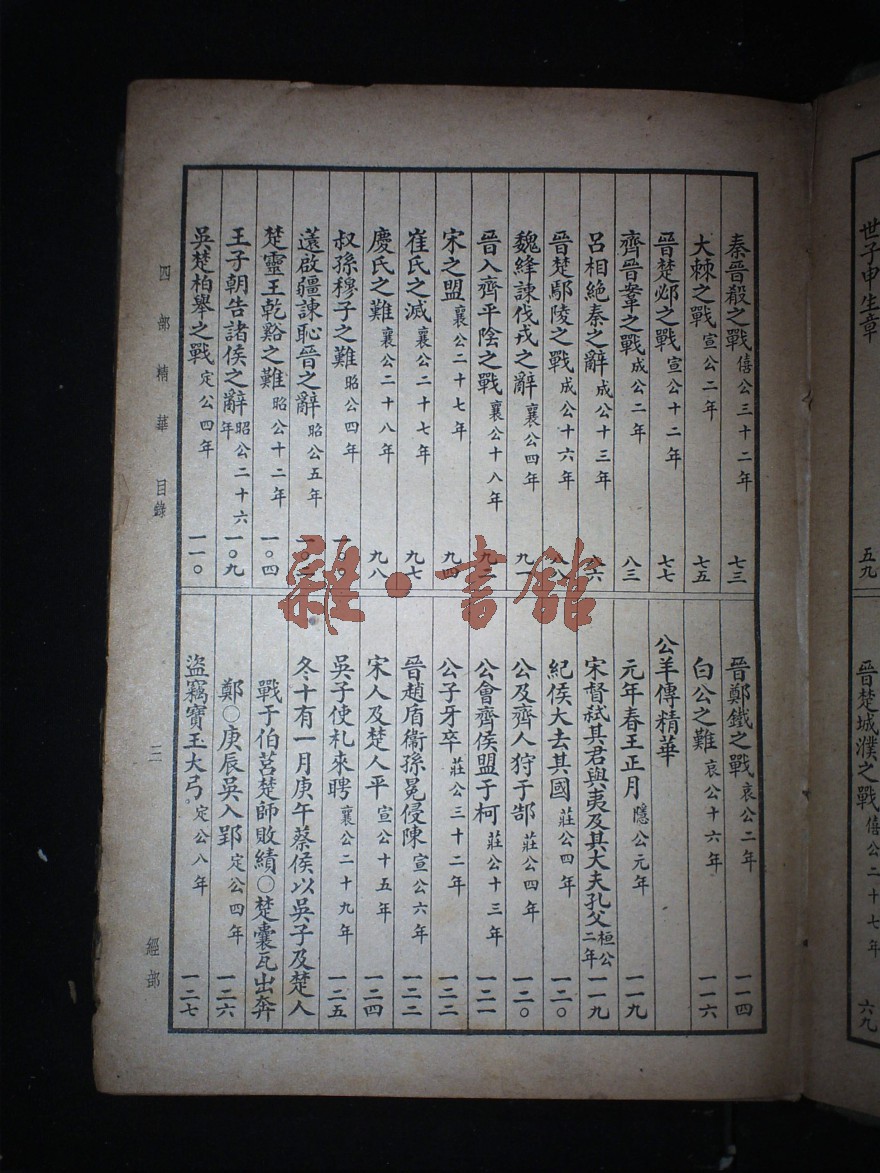 世子申生章 五九
晉楚城濮之戰 僖公二十七年 六九
秦晉殽之戰 僖公三十二年 七三
大棘之戰 宣公二年 七五
晉楚邲之戰 宣公十二年 七七
齊晉鞌之戰 成公二年 八三
呂相絕秦之辭 成公十三年 八六
晉楚鄢陵之戰 成公十六年 八八
魏絳諫伐戎之辭 襄公四年 九一
晉入齊平陰之戰 襄公十八年 九二
宋之盟 襄公二十七年 九四
崔氏之滅 襄公二十七年 九七
慶氏之難 襄公二十八年 九八
叔孫穆子之難 昭公四年 一〇〇
薳啟疆諫恥晉之辭 昭公五年 一〇二
楚靈王乾谿之難 昭公十二年 一〇四
王子朝告諸侯之辭 昭公二十六年 一〇九
吳楚柏舉之戰 定公四年 一一〇
晉鄭鐵之戰 哀公二年 一一四
白公之難 哀公十六年 一一六
公羊傳精華
元年春王正月 隱公元年 一一九
宋督弒其君與夷及其大夫孔父 桓公二年 一一九
紀侯大去其國 莊公四年 一二〇
公及齊人狩于郜 莊公四年 一二〇
公會齊侯盟于柯 莊公十三年 一二一
公子牙卒 莊公三十二年 一二二
晉趙盾衞孫免侵陳 宣公六年 一二二
宋人及楚人平 宣公十五年 一二四
吳子使札來聘 襄公二十九年 一二五
冬十有一月庚午蔡侯以吳子及楚人
戰于伯莒楚師敗績〇楚囊瓦出奔
鄭〇庚辰吳入郢 定公四年 一二六
盜竊寶玉大弓。 定公八年 一二七
四部精華 目錄 三 經部
雜·書館